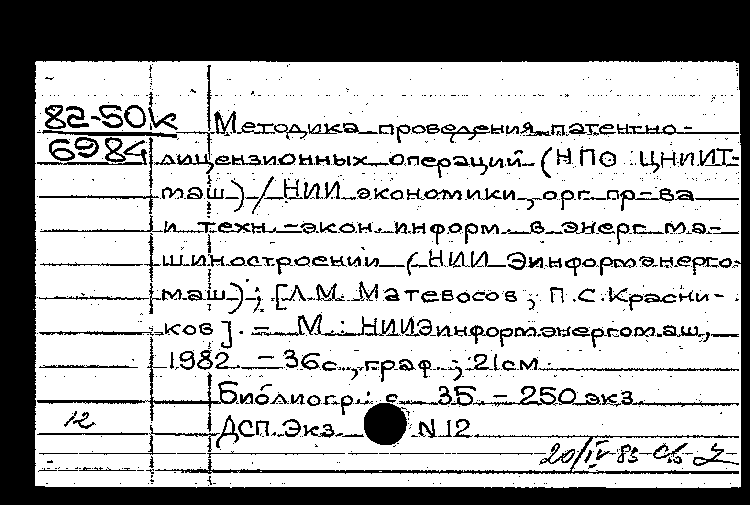 82-50к
6984
Методика проведения патентно-
лицензионных операций (НПО ЦНИИТ-
маш) / НИИ экономики, орг. пр-ва
и техн.-экон. информ. в энерг. ма-
шиностроении (НИИ Эинформэнерго-
маш); [Л.М. Матевосов, П.С. Красни-
ков]. – М.: НИИЭинформэнергомаш,
1982. – 36с., граф.; 21см.
Библиогр.: с. 35. – 250 экз.
12
ДСП. Экз. N 12.
20/IV 83